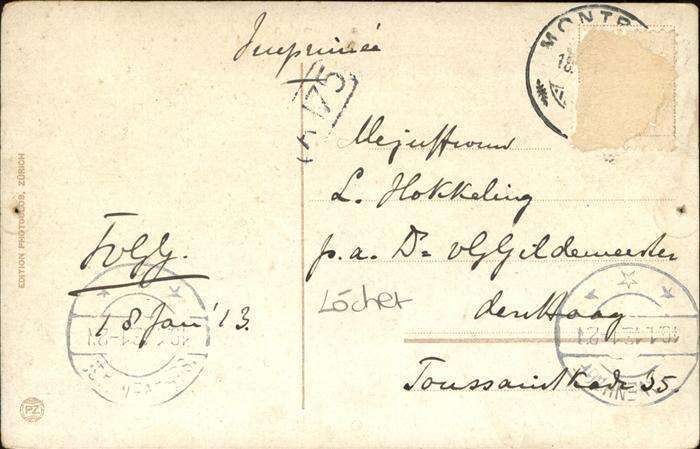 Imprimée
MONTR
18.
175
Mejuffrouw
L. Hokkeling
p.a. Dr v G Gildemeester
den Haag
Toussaintkade 35.
FvGG.
18 Jan '13.
Löcher
EDITION PHOTOGLOB, ZÜRICH
PZ